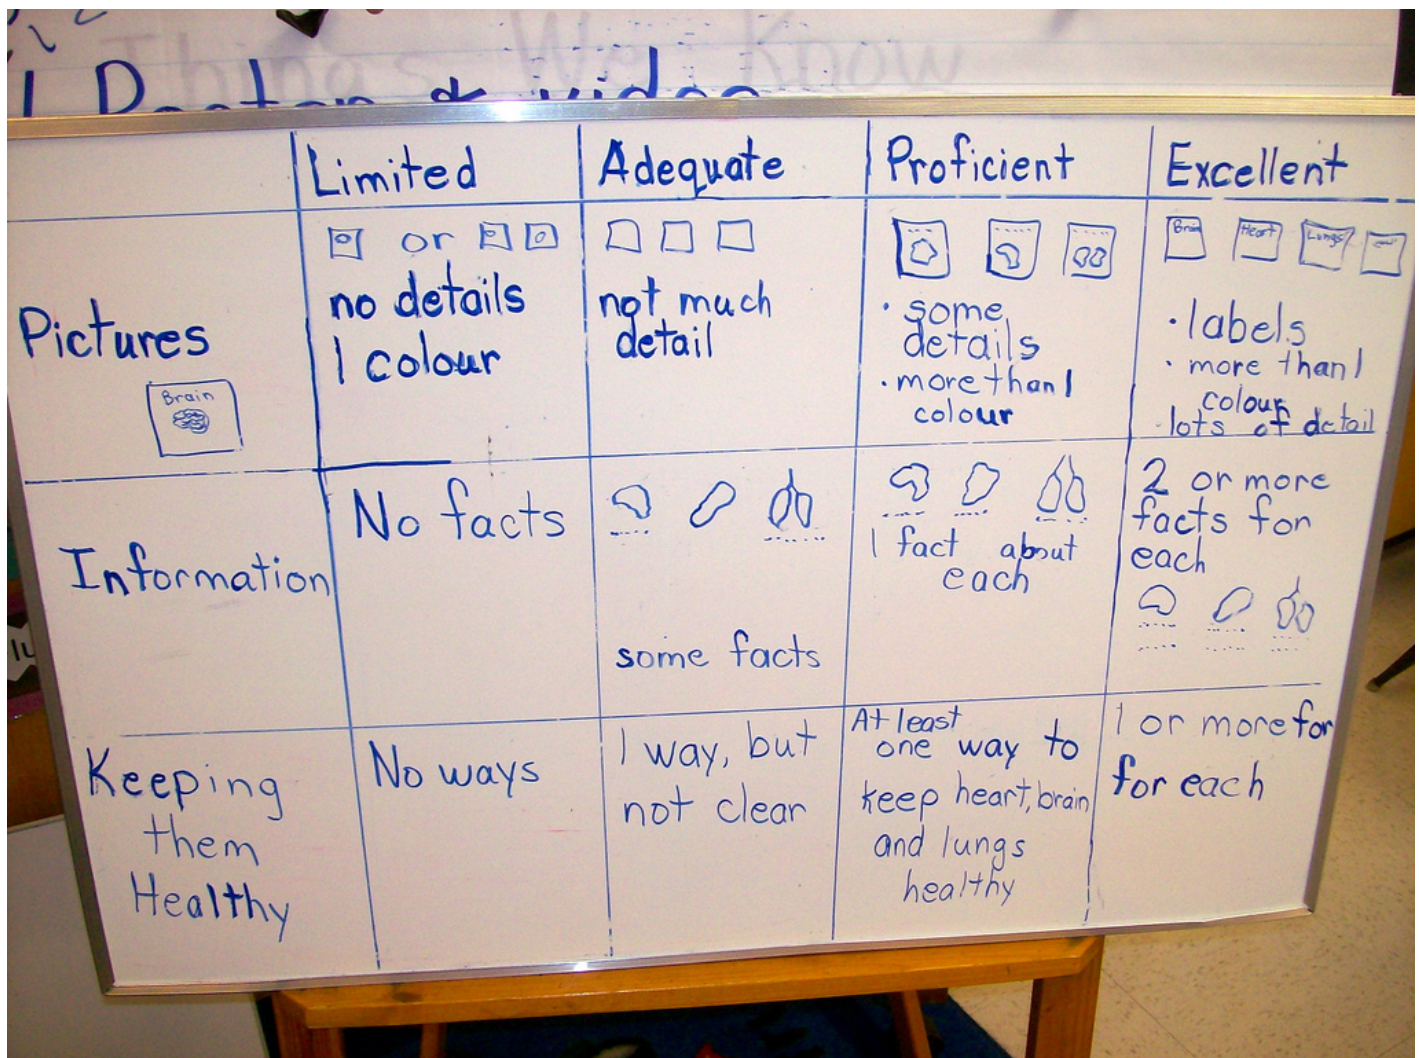 Things We Know
Limited
Adequate
Proficient
Excellent
Pictures
Brain
or
no details
1 colour
not much
detail
· some
details
· more than 1
colour
Brain
Heart
Lungs
· labels
· more than 1
colour
lots of detail
Information
No facts
some facts
1 fact about
each
2 or more
facts for
each
Keeping
them
Healthy
No ways
1 way, but
not clear
At least
one way to
keep heart, brain
and lungs
healthy
1 or more for
for each